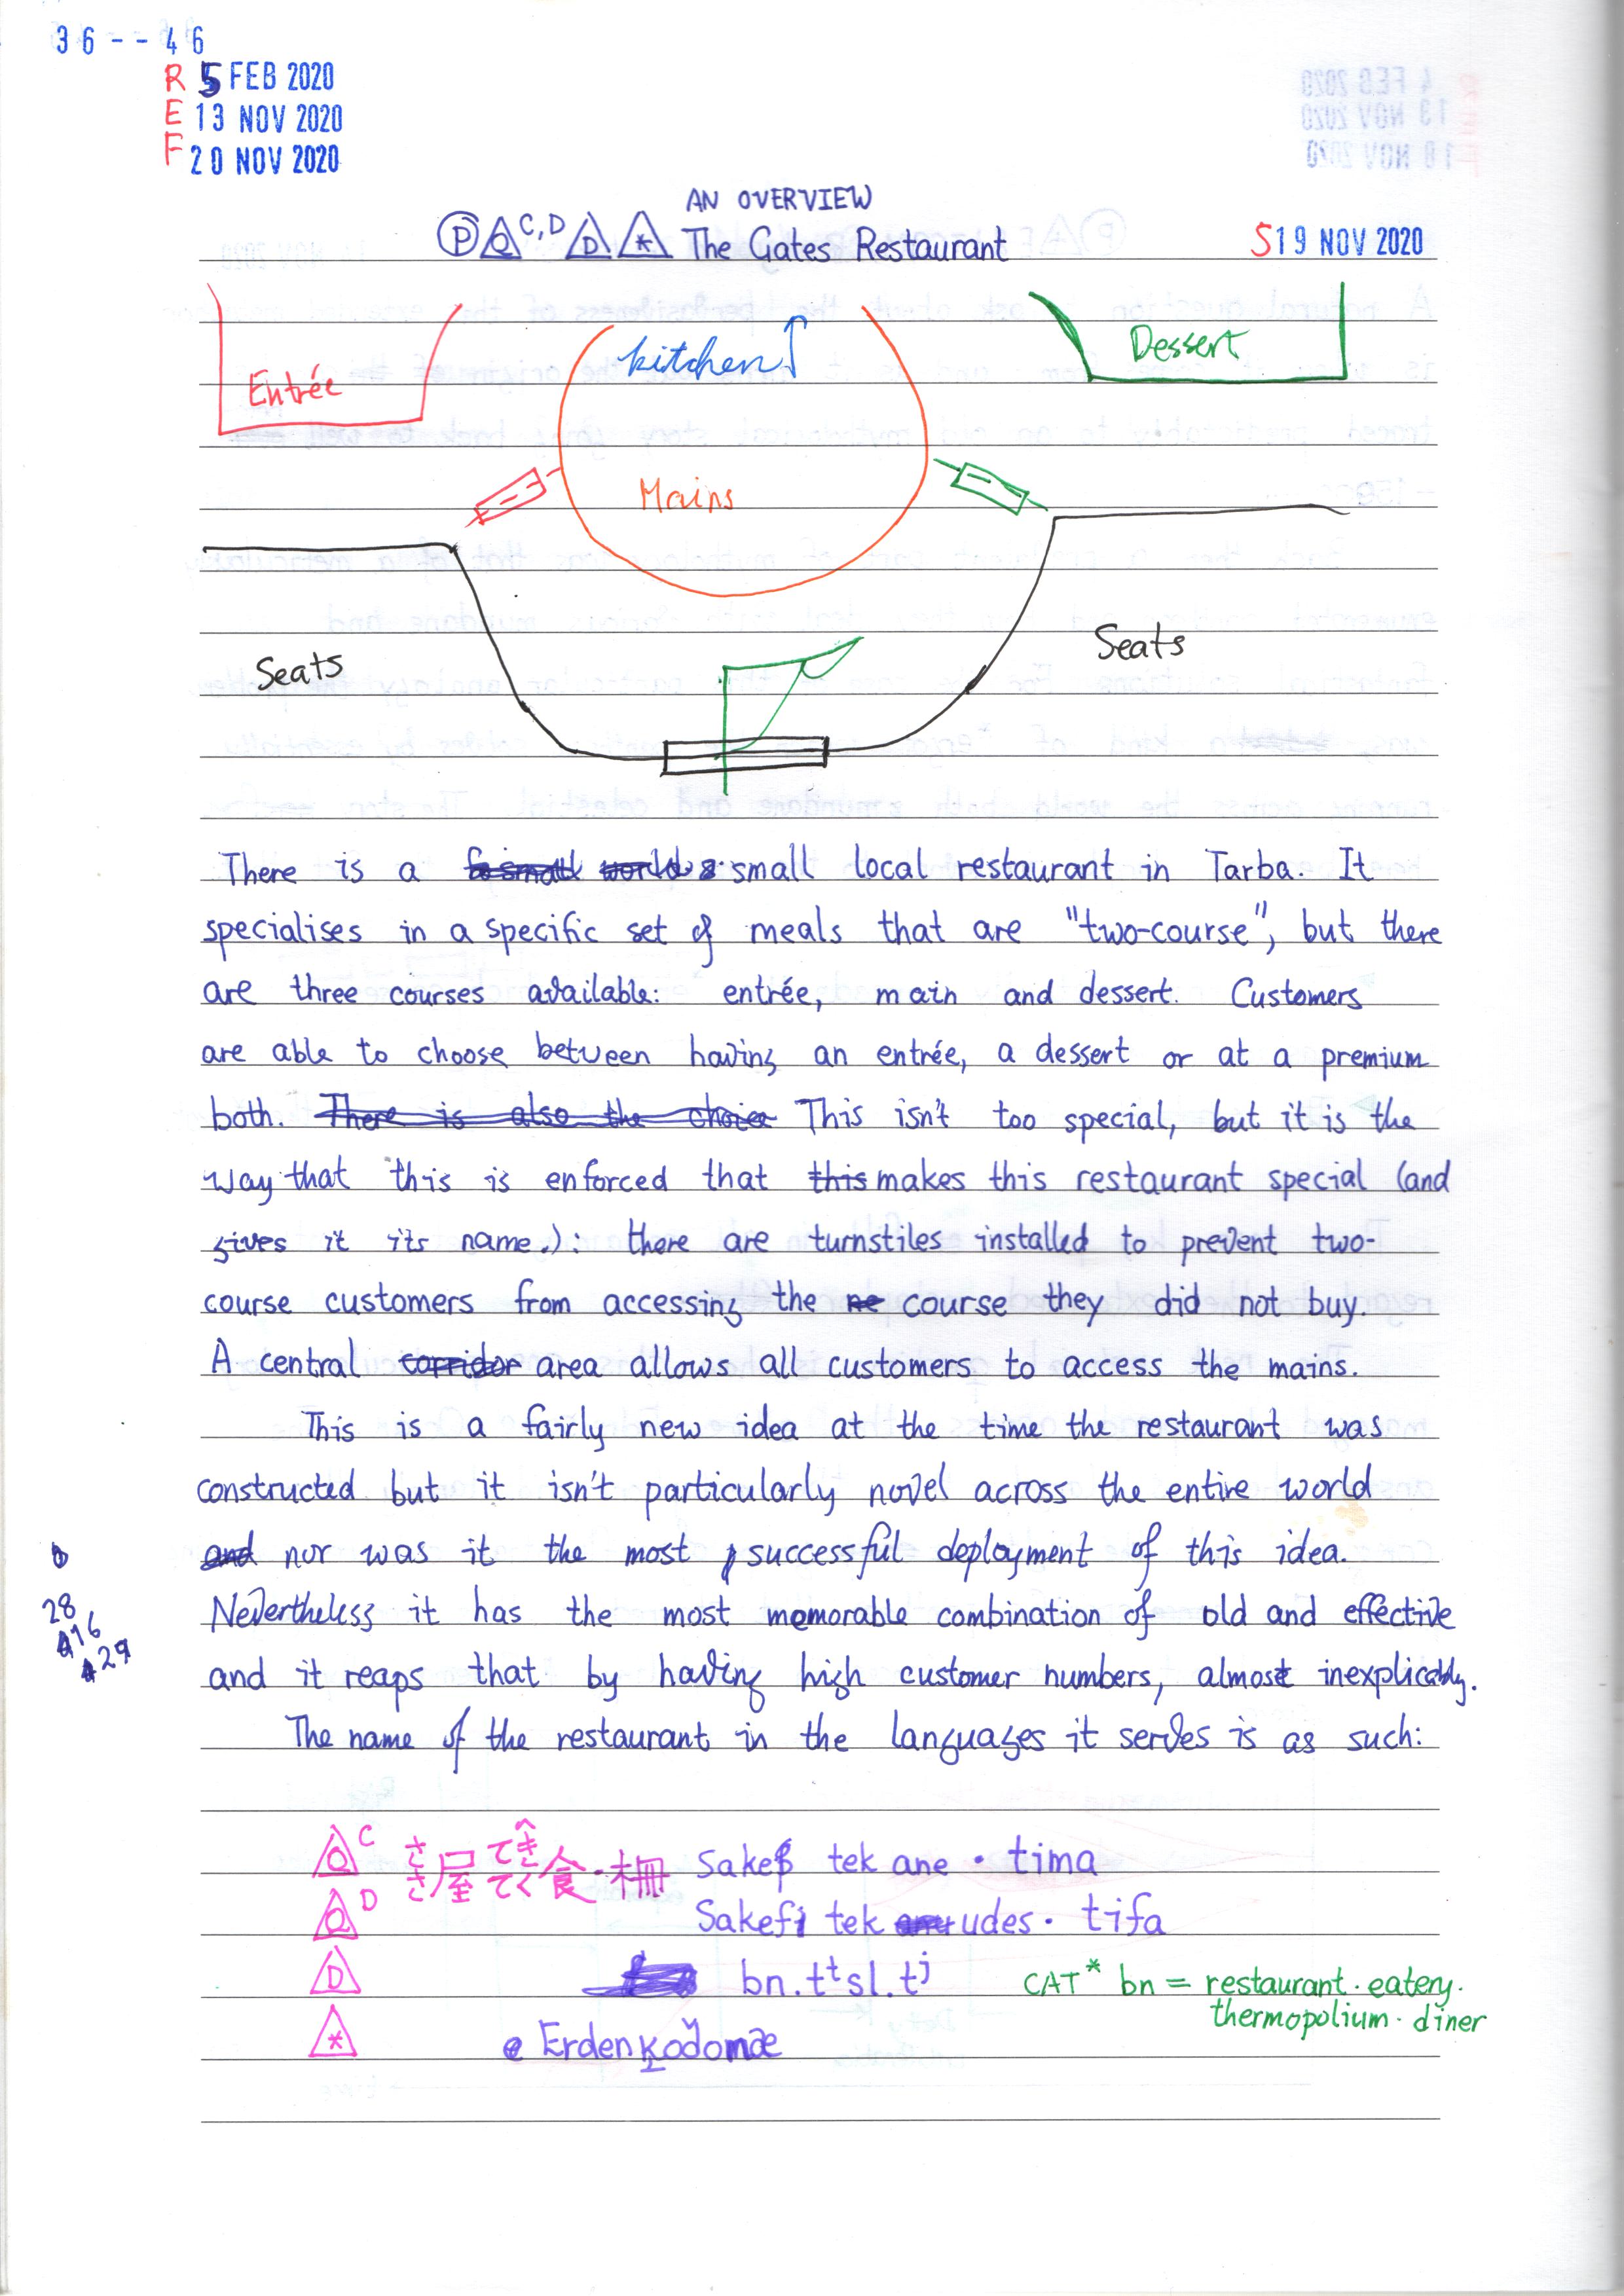 36--46
R 5 FEB 2020
E 13 NOV 2020
F 20 NOV 2020
AN OVERVIEW
P Q C,D D * The Gates Restaurant
S 19 NOV 2020
Entrée
kitchen
Dessert
Mains
Seats
Seats
There is a small local restaurant in Tarba. It
specialises in a specific set of meals that are "two-course", but there
are three courses available: entrée, main and dessert. Customers
are able to choose between having an entrée, a dessert or at a premium
both. There is also the choice This isn't too special, but it is the
way that this is enforced that this makes this restaurant special (and
gives it its name.): there are turnstiles installed to prevent two-
course customers from accessing the re course they did not buy.
A central corridor area allows all customers to access the mains.
This is a fairly new idea at the time the restaurant was
constructed but it isn't particularly novel across the entire world
and nor was it the most successful deployment of this idea.
Nevertheless it has the most memorable combination of old and effective
28
16
29
and it reaps that by having high customer numbers, almost inexplicably.
The name of the restaurant in the languages it serves is as such:
Q C さき屋てき食・柵 Sakef tek ane · tima
Q D Sakefi tek udes · tifa
D bn.tᵗsl.tʲ CAT* bn = restaurant · eatery ·
thermopolium · diner
* e Erden ķoðomæ